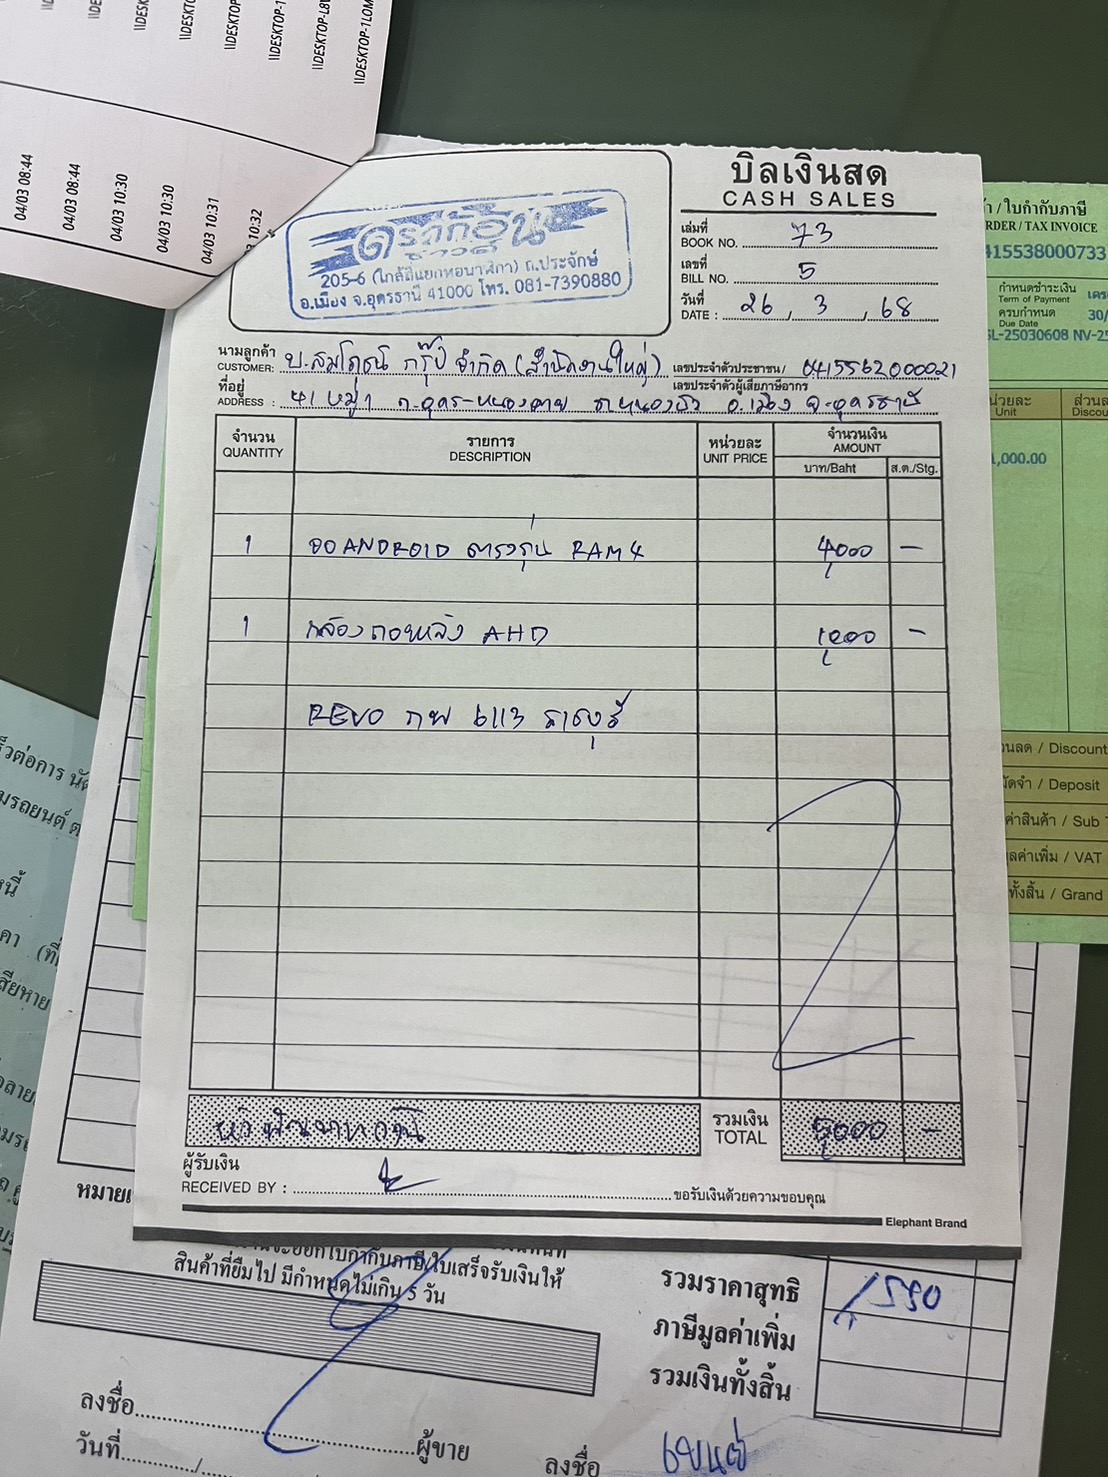 \\DESKTOP-1LOM
\\DESKTOP-L8
\\DESKTOP-1
\\DESKTOP
04/03 08:44
04/03 08:44
04/03 10:30
04/03 10:30
04/03 10:31
04/03 10:32
ดราก้อน
ซาวด์
205-6 (ใกล้สี่แยกหอนาฬิกา) ถ.ประจักษ์
อ.เมือง จ.อุดรธานี 41000 โทร. 081-7390880
บิลเงินสด
CASH SALES
เล่มที่
BOOK NO. 73
เลขที่
BILL NO. 5
วันที่
DATE : 26 / 3 / 68
นามลูกค้า
CUSTOMER: บ.สมโภชน์ กรุ๊ป จำกัด (สำนักงานใหญ่) เลขประจำตัวประชาชน/ 0415562000021
เลขประจำตัวผู้เสียภาษีอากร
ที่อยู่
ADDRESS : 41 หมู่1 ถ.อุดร-หนองคาย ต.หนองบัว อ.เมือง จ.อุดรธานี
จำนวน
QUANTITY
รายการ
DESCRIPTION
หน่วยละ
UNIT PRICE
จำนวนเงิน
AMOUNT
บาท/Baht ส.ต./Stg.
1 จอ ANDROID ตรงรุ่น RAM4 4,000 -
1 กล้องถอยหลัง AHD 1,000 -
REVO กพ 6113 ราชบุรี
รวมเงิน
TOTAL
5,000 -
ผู้รับเงิน
RECEIVED BY : ขอรับเงินด้วยความขอบคุณ
Elephant Brand
/ ใบกำกับภาษี
RDER / TAX INVOICE
415538000733
กำหนดชำระเงิน
Term of Payment
ครบกำหนด 30/
Due Date
SL-25030608
หน่วยละ
Unit
ส่วนล
Discou
1,000.00
วนลด / Discount
มัดจำ / Deposit
ค่าสินค้า / Sub
ลค่าเพิ่ม / VAT
ทั้งสิ้น / Grand
สินค้าที่ยืมไป มีกำหนดไม่เกิน 5 วัน
รวมราคาสุทธิ 1,550
ภาษีมูลค่าเพิ่ม
รวมเงินทั้งสิ้น
ลงชื่อ ผู้ขาย
วันที่
ลงชื่อ